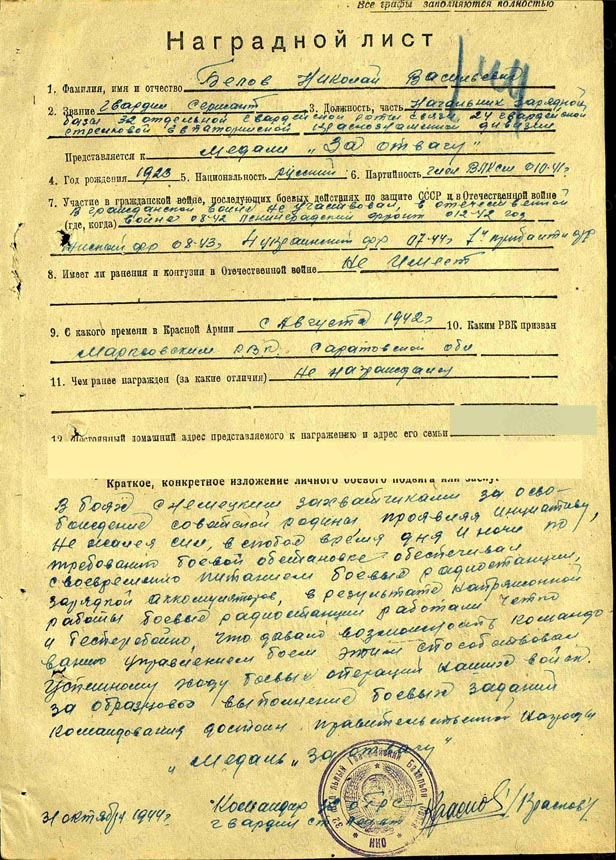 Все графы заполняются полностью
Наградной лист
1. Фамилия, имя и отчество Белов Николай Васильевич
2. Звание Гвардии Сержант 3. Должность, часть Начальник Зарядной
базы 32 отдельной Гвардейской роты связи, 24 Гвардейской
стрелковой Евпаторийской Краснознаменной дивизии
Представляется к медали "За отвагу"
4. Год рождения 1923 5. Национальность русский 6. Партийность член ВЛКСМ 010-41г
7. Участие в гражданской войне, последующих боевых действиях по защите СССР и в Отечественной войне
В гражданской войне не участвовал, в отечественной
(где, когда) войне 08-42 Ленинградский фронт 012-42 год
Южный фр 08-43г 4 украинский фр 07-44г 1й прибалти фр
8. Имеет ли ранения и контузии в Отечественной войне Не Имеет
9. С какого времени в Красной Армии с Августа 1942г 10. Каким РВК призван
РВК Саратовской обл
11. Чем ранее награжден (за какие отличия) Не награждался
12. Постоянный домашний адрес представляемого к награждению и адрес его семьи
Краткое, конкретное изложение личного боевого подвига или
В боях с немецкими захватчиками за осво-
бождение советской родины проявляя инициативу,
не жалея сил, в любое время дня и ночи по
требованию боевой обстановке обеспечивал
своевременно питанием боевые радиостанции,
зарядкой аккомуляторов, в результате напряжонной
работы боевые радиостанции работали четко
и бесперебойно, что давало возможность Командо-
ванию управлением боем этим способствовал
Успешному ходу боевых операций наших войск.
За образцовое выполнение боевых заданий
Командования достоин правительственной награды
"Медаль "За отвагу"
31 октября 1944г Командир
гвардии Краснов /Краснов/